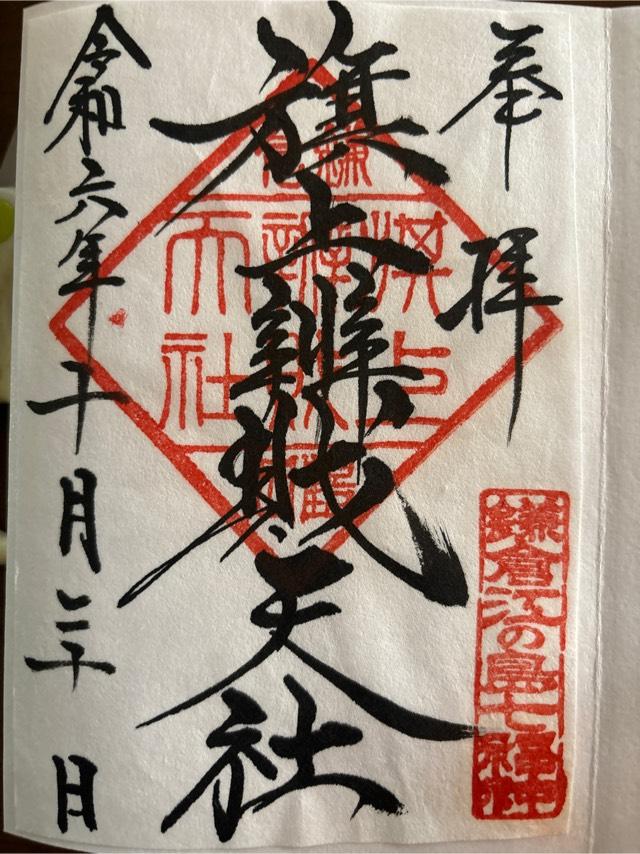 奉拝
鎌倉江の島七福神
旗上辨財天社
旗上
辨財
天社
令和六年十月二十日